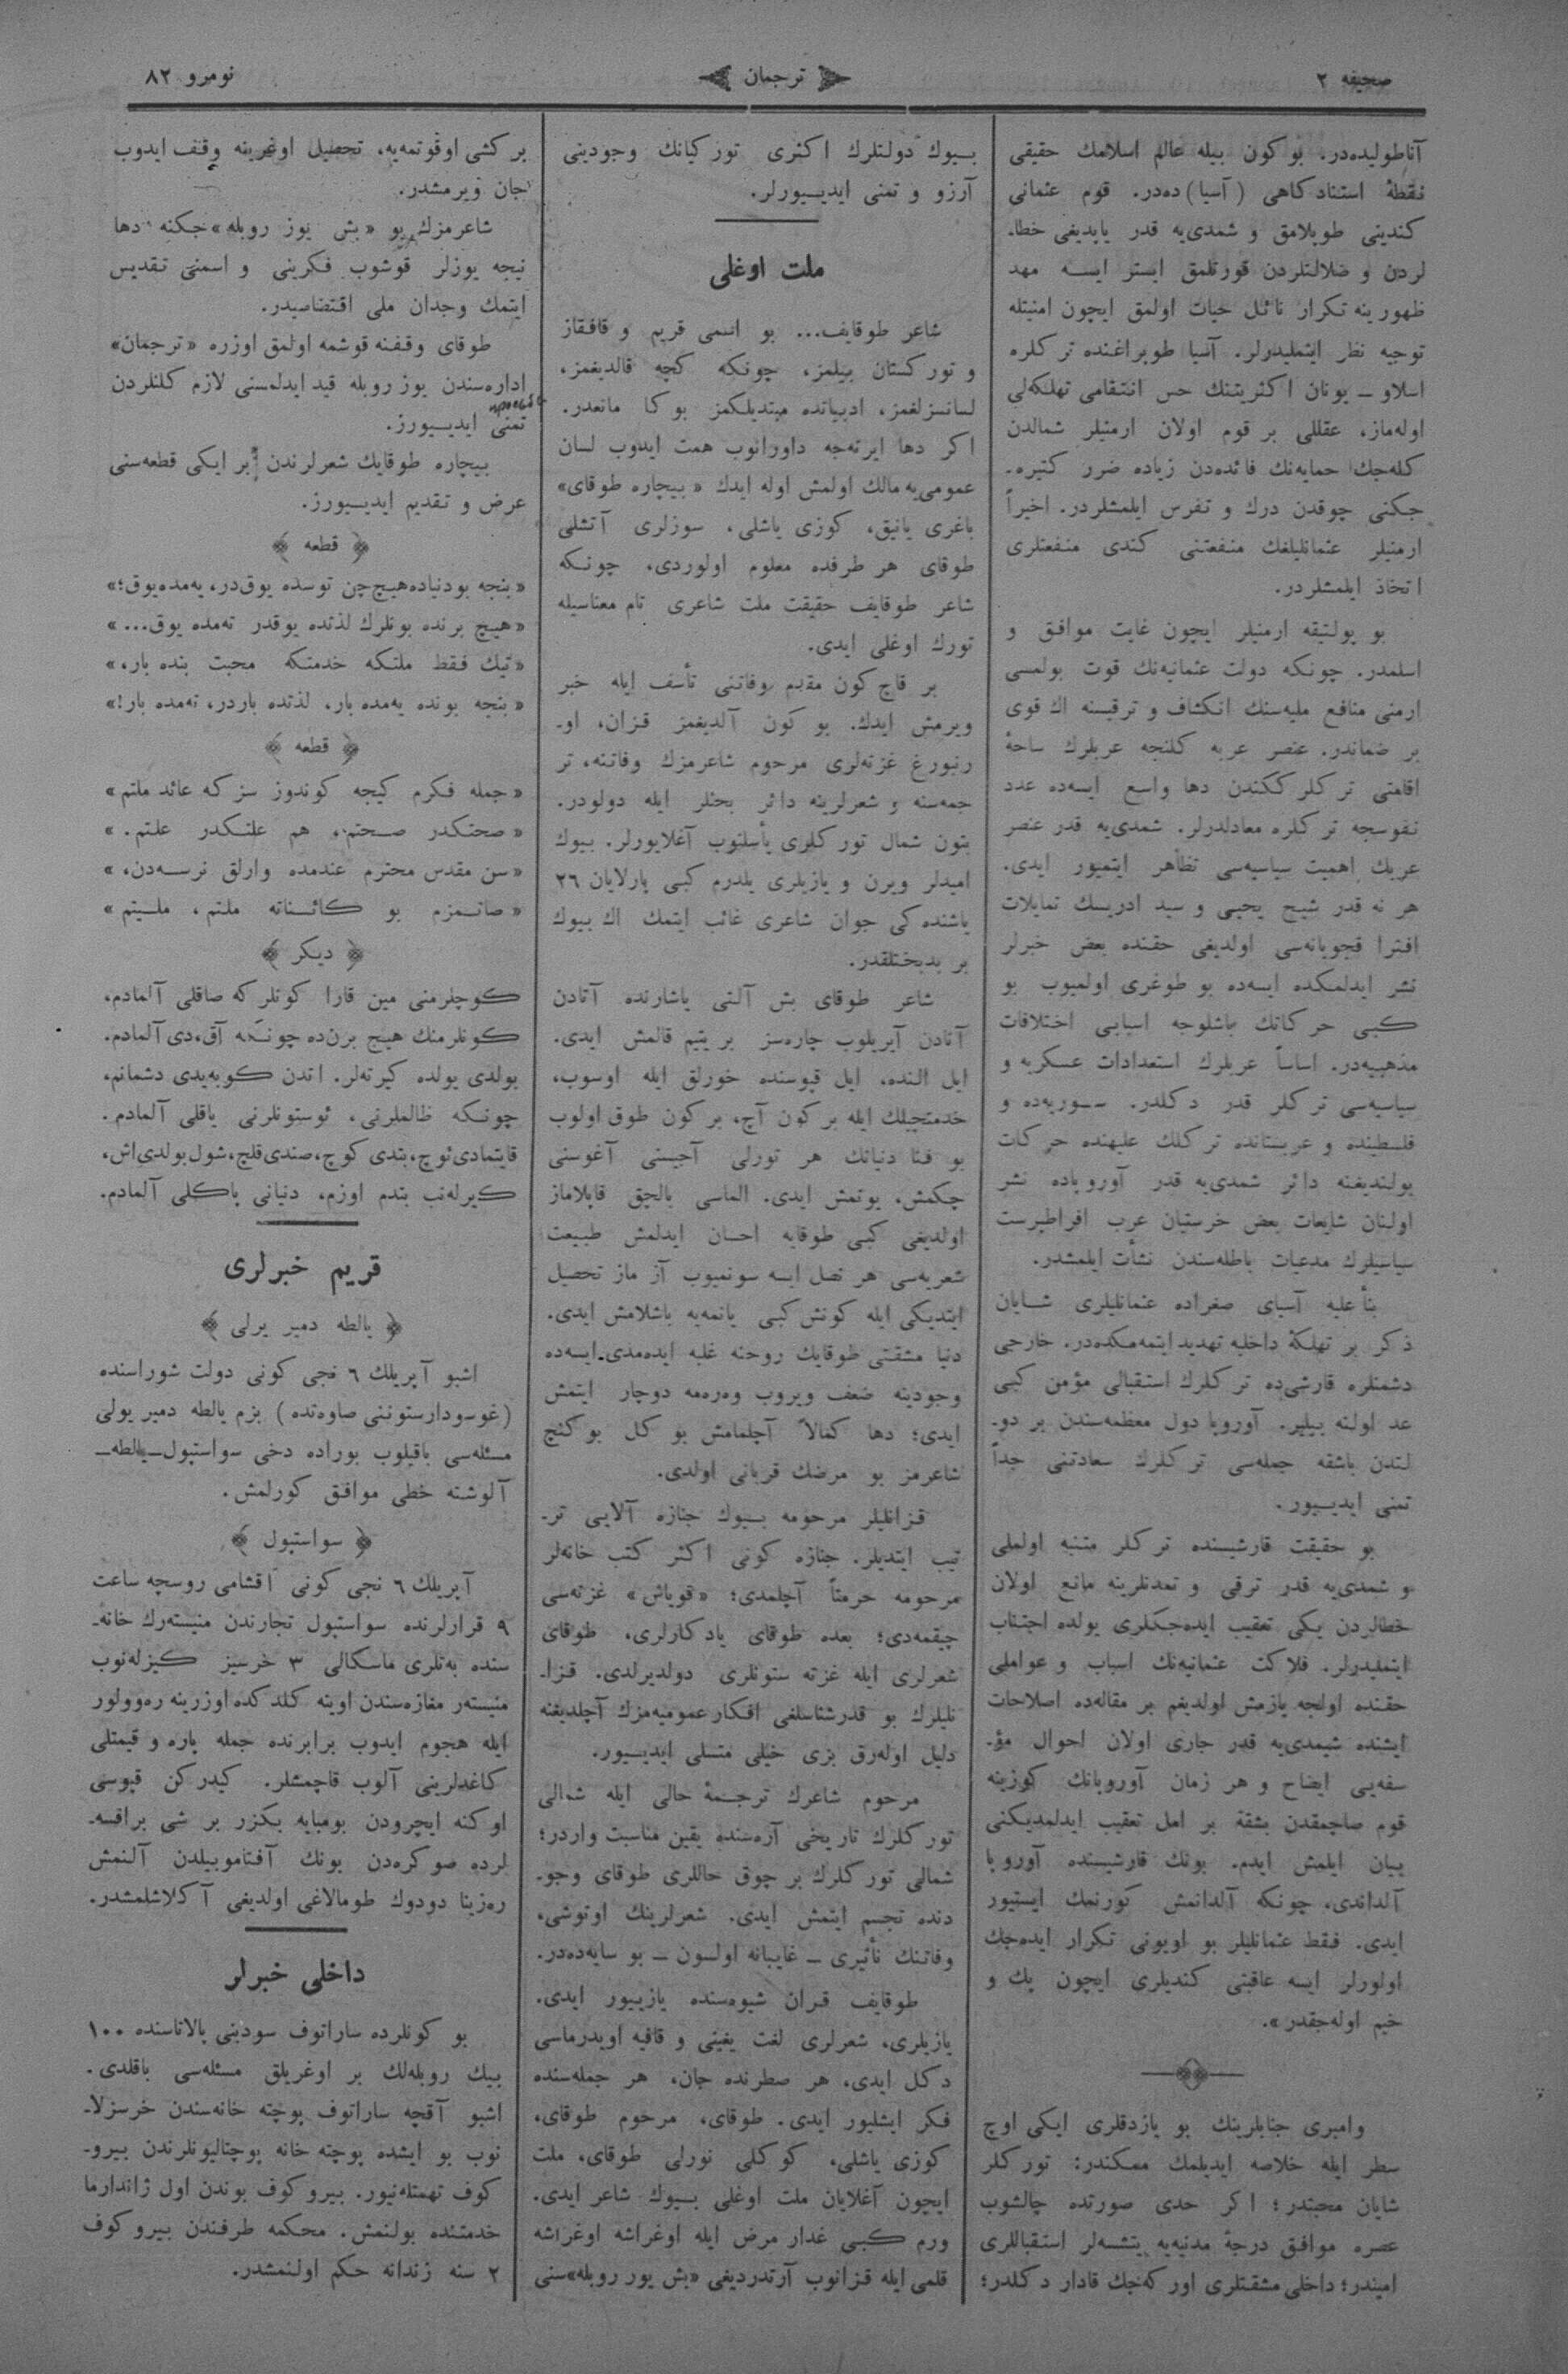 صحیفه ٢
ترجمان
نومرو ٨٢
آناطولیده‌در. بو کون بیله عالم اسلامك حقیقی
نقطهٔ استنادکاهی (آسیا)ده‌در. قوم عثمانی
کندینی طوپلامق و شمدی‌یه قدر یاپدیغی خطا-
لردن و ضلالتلردن قورتلمق ایستر ایسه مهد
ظهورینه تکرار نائل حیات اولمق ایچون امنیتله
توجیه نظر ایتملیدرلر. آسیا طوپراغنده ترکلره
اسلاو ــ یونان اکثریتنك حس انتقامی تهلکه‌لی
اوله‌ماز، عقللی بر قوم اولان ارمنیلر شمالدن
کله‌جك حمایه‌نك فائده‌دن زیاده ضرر کتیره-
جکنی چوقدن درك و تفرس ایلمشلردر. اخیراً
ارمنیلر عثمانلیلغك منفعتنی کندی منفعتلری
اتخاذ ایلمشلردر.
بو پولتیقه ارمنیلر ایچون غایت موافق و
اسلمدر. چونکه دولت عثمانیه‌نك قوت بولمسی
ارمنی منافع ملیه‌سنك انکشاف و ترقیسنه اك قوی
بر ضماندر. عنصر عربه کلنجه عربلرك ساحهٔ
اقامتی ترکلرککندن دها واسع ایسه‌ده عدد
نفوسجه ترکلره معادلدرلر. شمدی‌یه قدر عنصر
عربك اهمیت سیاسیه‌سی تظاهر ایتمیور ایدی.
هر نه قدر شیخ یحیی و سید ادریسك تمایلات
افترا قجویانه‌سی اولدیغی حقنده بعض خبرلر
نشر ایدلمکده ایسه‌ده بو طوغری اولمیوب بو
کبی حرکاتك باشلوجه اسبابی اختلافات
مذهبیه‌در. اساساً عربلرك استعدادات عسکریه و
سیاسیه‌سی ترکلر قدر دکلدر. سوریه‌ده و
فلسطینده و عربستانده ترکلك علیهنده حرکات
بولندیغنه دائر شمدی‌یه قدر آوروپاده نشر
اولنان شایعات بعض خرستیان عرب افراطپرست
سیاسیلرك مدعیات باطله‌سندن نشأت ایلمشدر.
بنأ علیه آسیای صغراده عثمانلیلری شایان
ذکر بر تهلکهٔ داخلیه تهدید ایتمه‌مکده‌در. خارجی
دشمنلره قارشی‌ده ترکلرك استقبالی مؤمن کبی
عد اولنه بیلیر. آوروپا دول معظمه‌سندن بر دو-
لتدن باشقه جمله‌سی ترکلرك سعادتنی جداً
تمنی ایدییور.
بو حقیقت قارشیسنده ترکلر متنبه اولملی
و شمدی‌یه قدر ترقی و تمدنلرینه مانع اولان
خطالردن یکی تعقیب ایده‌جکلری یولده اجتناب
ایتملیدرلر. فلاکت عثمانیه‌نك اسباب و عواملی
حقنده اولجه یازمش اولدیغم بر مقاله‌ده اصلاحات
ایشنده شیمدی‌یه قدر جاری اولان احوال مؤ-
سفه‌یی ایضاح و هر زمان آوروپانك کوزینه
قوم صاچمقدن بشقه بر امل تعقیب ایدلمدیکنی
بیان ایلمش ایدم. بونك قارشیسنده آوروپا
آلداندی، چونکه آلدانمش کورنمك ایستیور
ایدی. فقط عثمانلیلر بو اویونی تکرار ایده‌جك
اولورلر ایسه عاقبتی کندیلری ایچون پك و
خیم اوله‌جقدر».
وامبری جنابلرینك بو یازدقلری ایکی اوچ
سطر ایله خلاصه ایدیلمك ممکندر: تورکلر
شایان محبتدر؛ اکر حدی صورتده چالشوب
عصره موافق درجهٔ مدنیه‌یه یتشسه‌لر استقباللری
امیندر؛ داخلی مشقتلری اورکه‌جك قادار دکلدر؛
بیوك دولتلرك اکثری تورکیانك وجودینی
آرزو و تمنی ایدییورلر.
ملت اوغلی
شاعر طوقایف... بو اسمی قریم و قافقاز
و تورکستان بیلمز، چونکه کچه قالدیغمز،
لسانسزلغمز، ادبیاتده مبتدیلکمز بوکا مانعدر.
اکر دها ایرته‌جه داورانوب همت ایدوب لسان
عمومی‌یه مالك اولمش اوله ایدك «بیچاره طوقای»
باغری یانیق، کوزی یاشلی، سوزلری آتشلی
طوقای هر طرفده معلوم اولوردی، چونکه
شاعر طوقایف حقیقت ملت شاعری تام معناسیله
تورك اوغلی ایدی.
بر قاچ کون مقدم وفاتنی تأسف ایله خبر
ویرمش ایدك. بو کون آلدیغمز قزان، او-
رنبورغ غزته‌لری مرحوم شاعرمزك وفاتنه، تر
جمه‌سنه و شعرلرینه دائر بحثلر ایله دولودر.
بتون شمال تورکلری یأسلنوب آغلایورلر. بیوك
امیدلر ویرن و یازیلری یلدرم کبی پارلایان ٢٦
یاشنده کی جوان شاعری غائب ایتمك اك بیوك
بر بدبختلقدر.
شاعر طوقای بش آلتی یاشارنده آتادن
آنادن آیریلوب چاره‌سز بر یتیم قالمش ایدی.
ایل النده، ایل قپوسنده خورلق ایله اوسوب،
خدمتجیلك ایله بر کون آچ، بر کون طوق اولوب
بو فنا دنیانك هر تورلی آجیسنی آغوسنی
چکمش، یوتمش ایدی. الماسی بالچق قاپلاماز
اولدیغی کبی طوقایه احسان ایدلمش طبیعت
شعریه‌سی هر نصل ایسه سونمیوب آز ماز تحصیل
ایتدیکی ایله کونش کبی یانمه‌یه باشلامش ایدی.
دنیا مشقتی طوقایك روحنه غلبه ایده‌مدی ایسه‌ده
وجودینه ضعف ویروب وه‌ره‌مه دوچار ایتمش
ایدی؛ دها کمالاً آچلمامش بو کل بو کنج
شاعرمز بو مرضك قربانی اولدی.
قزانلیلر مرحومه بیوك جنازه آلایی تر-
تیب ایتدیلر. جنازه کونی اکثر کتب خانه‌لر
مرحومه حرمتاً آچلمدی؛ «قویاش» غزته‌سی
چیقمه‌دی؛ بعده طوقای یادکارلری، طوقای
شعرلری ایله غزته ستونلری دولدیرلدی. قزا-
نلیلرك بو قدرشناسلغی افکار عمومیه‌مزك آچلدیغنه
دلیل اوله‌رق بزی خیلی متسلی ایدییور.
مرحوم شاعرك ترجمهٔ حالی ایله شمالی
تورکلرك تاریخی آره‌سنده یقین مناسبت واردر؛
شمالی تورکلرك بر چوق حاللری طوقای وجو-
دنده تجسم ایتمش ایدی. شعرلرینك اوتوشی،
وفاتنك تأثیری ــ غایبانه اولسون ــ بو سایه‌ده‌در.
طوقایف قزان شیوه‌سنده یازییور ایدی.
یازیلری، شعرلری لغت یغینی و قافیه اویدرماسی
دکل ایدی، هر صطرنده جان، هر جمله‌سنده
فکر ایشلیور ایدی. طوقای، مرحوم طوقای،
کوزی یاشلی، کوکلی نورلی طوقای، ملت
ایچون آغلایان ملت اوغلی بیوك شاعر ایدی.
ورم کبی غدار مرض ایله اوغراشه اوغراشه
قلمی ایله قزانوب آرتدردیغی «بش یوز روبله»سنی
بر کشی اوقوتمه‌یه، تحصیل اوغرینه وقف ایدوب
جان ویرمشدر.
شاعرمزك بو «بش یوز روبله»جکنه دها
نیجه یوزلر قوشوب فکرینی و اسمنی تقدیس
ایتمك وجدان ملی اقتضاسیدر.
طوقای وقفنه قوشمه اولمق اوزره «ترجمان»
اداره‌سندن یوز روبله قید ایدلمسنی لازم کلنلردن
تمنی ایدییورز.
بیچاره طوقایك شعرلرندن بر ایکی قطعه‌سنی
عرض و تقدیم ایدییورز.
﴿ قطعه ﴾
«بنجه بودنیاده هیچ چن توسده یوق‌در، یه‌مده یوق؛»
«هیچ برنده بونلرك لذتده یوقدر ته‌مده یوق...»
«تیك فقط ملتکه خدمتکه محبت بنده بار،»
«بنجه بونده یه‌مده بار، لذتده باردر، ته‌مده بار!»
﴿ قطعه ﴾
«جمله فکرم کیجه کوندوز سزکه عائد ملتم»
«صحتکدر صحتم، هم علتکدر علتم.»
«سن مقدس محترم عندمده وارلق نرسه‌دن،»
«صاتمزم بو کائناته ملتم، ملیتم»
﴿ دیکر ﴾
کوچلرمنی مین قارا کونلرکه صاقلی آلمادم،
کونلرمنك هیچ برن‌ده چونکه آق‌دی آلمادم.
یولدی یولده کیرته‌لر. اتدن کوبه‌یدی دشمانم،
چونکه ظالملرنی، ئوستونلرنی یاقلی آلمادم.
قایتمادی ئوچ، بتدی کوچ، صندی قلچ، شول بولدی اش،
کیرله‌نب بتدم اوزم، دنیانی پاکلی آلمادم.
قریم خبرلری
﴿ یالطه دمیر یرلی ﴾
اشبو آپریلك ٦ نجی کونی دولت شوراسنده
(غوسودارستوننی صاوه‌تده) بزم یالطه دمیر یولی
مسئله‌سی باقیلوب بوراده دخی سواستپول ــ یالطه ــ
آلوشته خطی موافق کورلمش.
﴿ سواستپول ﴾
آپریلك ٦ نجی کونی آقشامی روسچه ساعت
٩ قرارلرنده سواستپول تجارندن منیسته‌رك خانه-
سنده به‌تلری ماسکالی ٣ خرسیز کیزله‌نوب
منیسته‌ر مغازه‌سندن اوینه کلدکده اوزرینه ره‌وولور
ایله هجوم ایدوب برابرنده جمله پاره و قیمتلی
کاغدلرینی آلوب قاچمشلر. کیدرکن قپوسی
اوکنه ایچرودن بومبایه بکزر بر شی براقسه-
لرده صوکره‌دن بونك آفتاموبیلدن آلنمش
ره‌زینا دودوك طومالاغی اولدیغی آکلاشلمشدر.
داخلی خبرلر
بو کونلرده ساراتوف سودبنی پالاتاسنده ١٠٠
بیك روبله‌لك بر اوغریلق مسئله‌سی باقلدی.
اشبو آقچه ساراتوف پوچته خانه‌سندن خرسزلا-
نوب بو ایشده پوچته خانه پوچتالیونلرندن بیرو-
کوف تهمتله‌نیور. بیروکوف بوندن اول ژاندارما
خدمتنده بولنمش. محکمه طرفندن بیروکوف
٢ سنه زندانه حکم اولنمشدر.